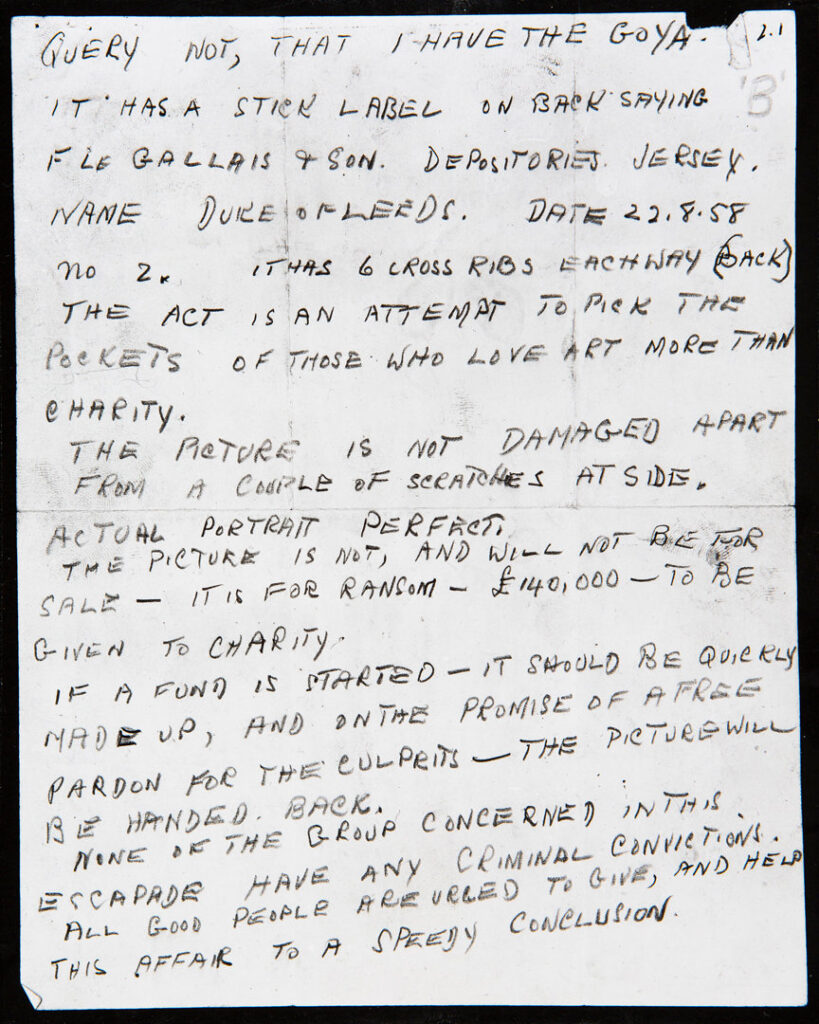 QUERY NOT, THAT I HAVE THE GOYA.
2.1
'B'
IT HAS A STICK LABEL ON BACK SAYING
F LE GALLAIS & SON. DEPOSITORIES. JERSEY.
NAME DUKE OF LEEDS. DATE 22.8.58
NO 2. IT HAS 6 CROSS RIBS EACHWAY (BACK)
THE ACT IS AN ATTEMPT TO PICK THE
POCKETS OF THOSE WHO LOVE ART MORE THAN
CHARITY.
THE PICTURE IS NOT DAMAGED APART
FROM A COUPLE OF SCRATCHES AT SIDE.
ACTUAL PORTRAIT PERFECT.
THE PICTURE IS NOT, AND WILL NOT BE FOR
SALE — IT IS FOR RANSOM — £140,000 — TO BE
GIVEN TO CHARITY.
IF A FUND IS STARTED — IT SHOULD BE QUICKLY
MADE UP, AND ON THE PROMISE OF A FREE
PARDON FOR THE CULPRITS — THE PICTURE WILL
BE HANDED. BACK.
NONE OF THE GROUP CONCERNED IN THIS
ESCAPADE HAVE ANY CRIMINAL CONVICTIONS.
ALL GOOD PEOPLE ARE URGED TO GIVE, AND HELP
THIS AFFAIR TO A SPEEDY CONCLUSION.